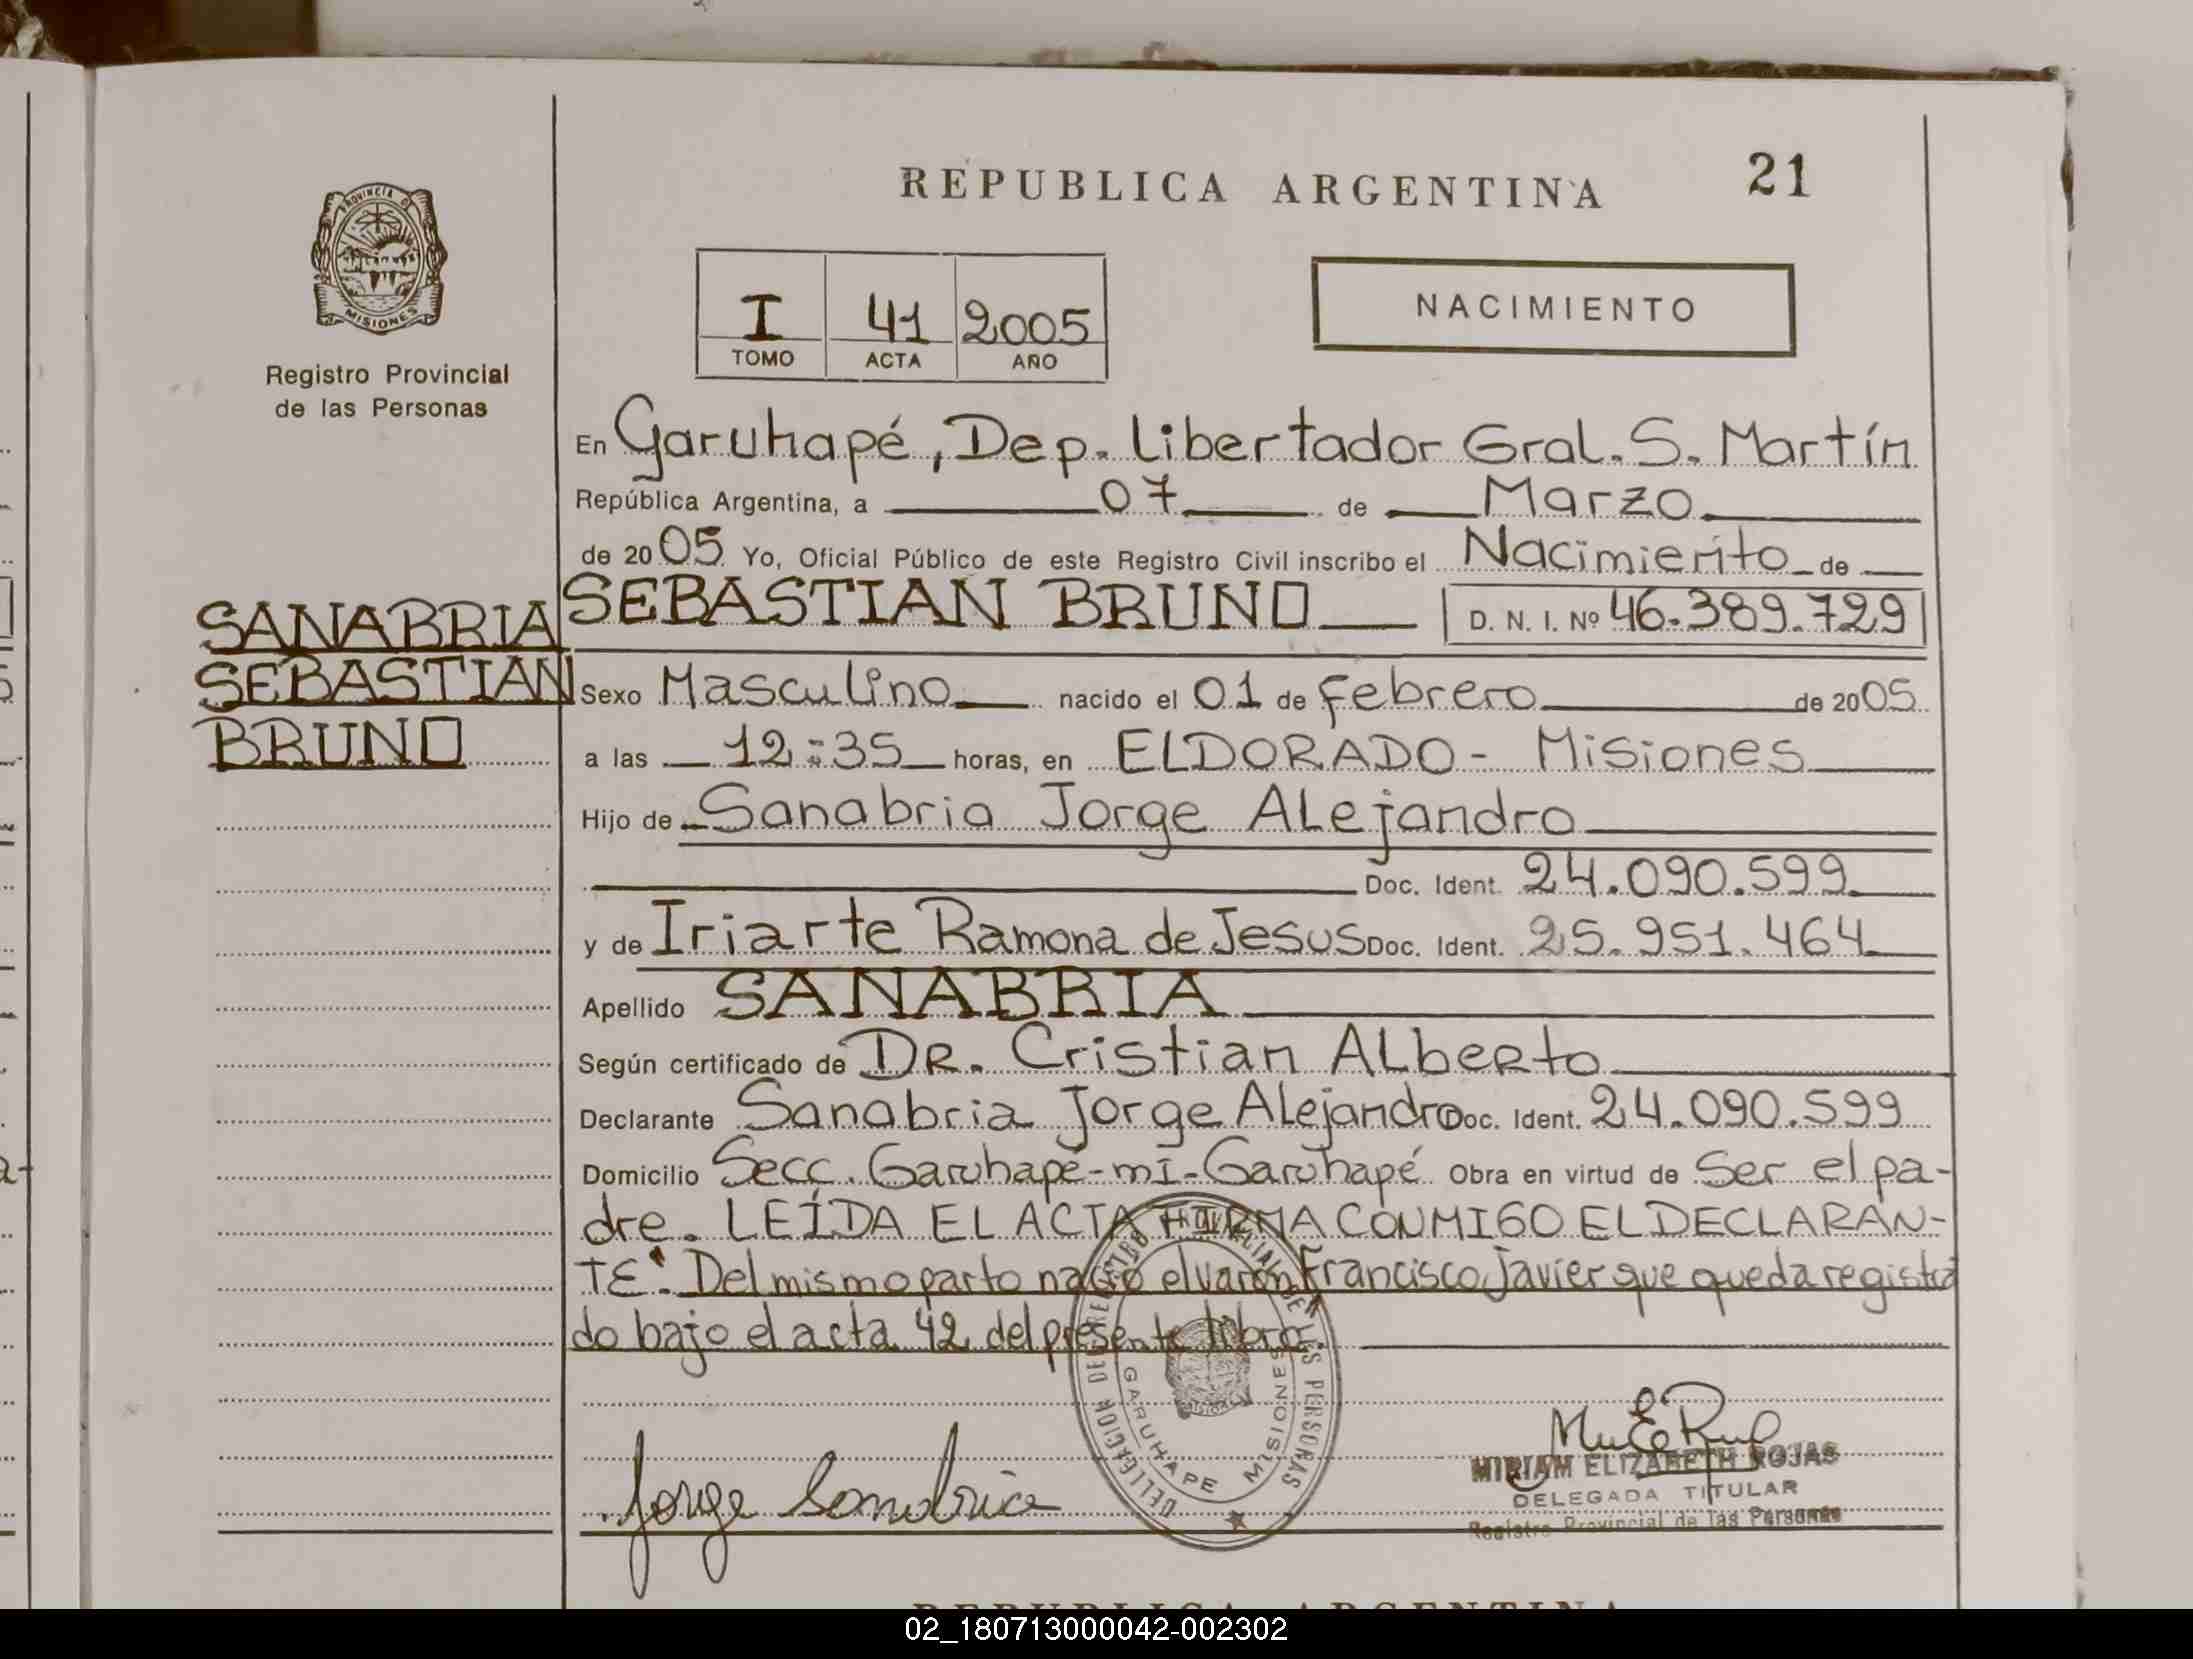 REPUBLICA ARGENTINA
21
PROVINCIA DE
MISIONES
Registro Provincial
de las Personas
I 41 2005
TOMO ACTA AÑO
NACIMIENTO
En Garuhapé, Dep. Libertador Gral. S. Martín
República Argentina, a 07 de Marzo
de 2005 Yo, Oficial Público de este Registro Civil inscribo el Nacimiento de
SEBASTIAN BRUNO D. N. I. Nº 46.389.729
SANABRIA
SEBASTIAN
BRUNO
Sexo Masculino nacido el 01 de Febrero de 2005
a las 12:35 horas, en ELDORADO - Misiones
Hijo de Sanabria Jorge Alejandro
Doc. Ident. 24.090.599
y de Iriarte Ramona de Jesus Doc. Ident. 25.951.464
Apellido SANABRIA
Según certificado de DR. Cristian Alberto
Declarante Sanabria Jorge Alejandro Doc. Ident. 24.090.599
Domicilio Secc. Garuhapé-mí-Garuhapé Obra en virtud de Ser el pa-
dre. LEÍDA EL ACTA FIRMA CONMIGO EL DECLARAN-
TE. Del mismo parto nació el varón Francisco Javier que queda registra
do bajo el acta 42 del presente libro.
DELEGACION DEL REGISTRO PROVINCIAL DE LAS PERSONAS
GARUHAPE MISIONES
Jorge Sanabria
MIRIAM ELIZABETH ROJAS
DELEGADA TITULAR
Registro Provincial de las Personas
REPUBLICA ARGENTINA
02_180713000042-002302